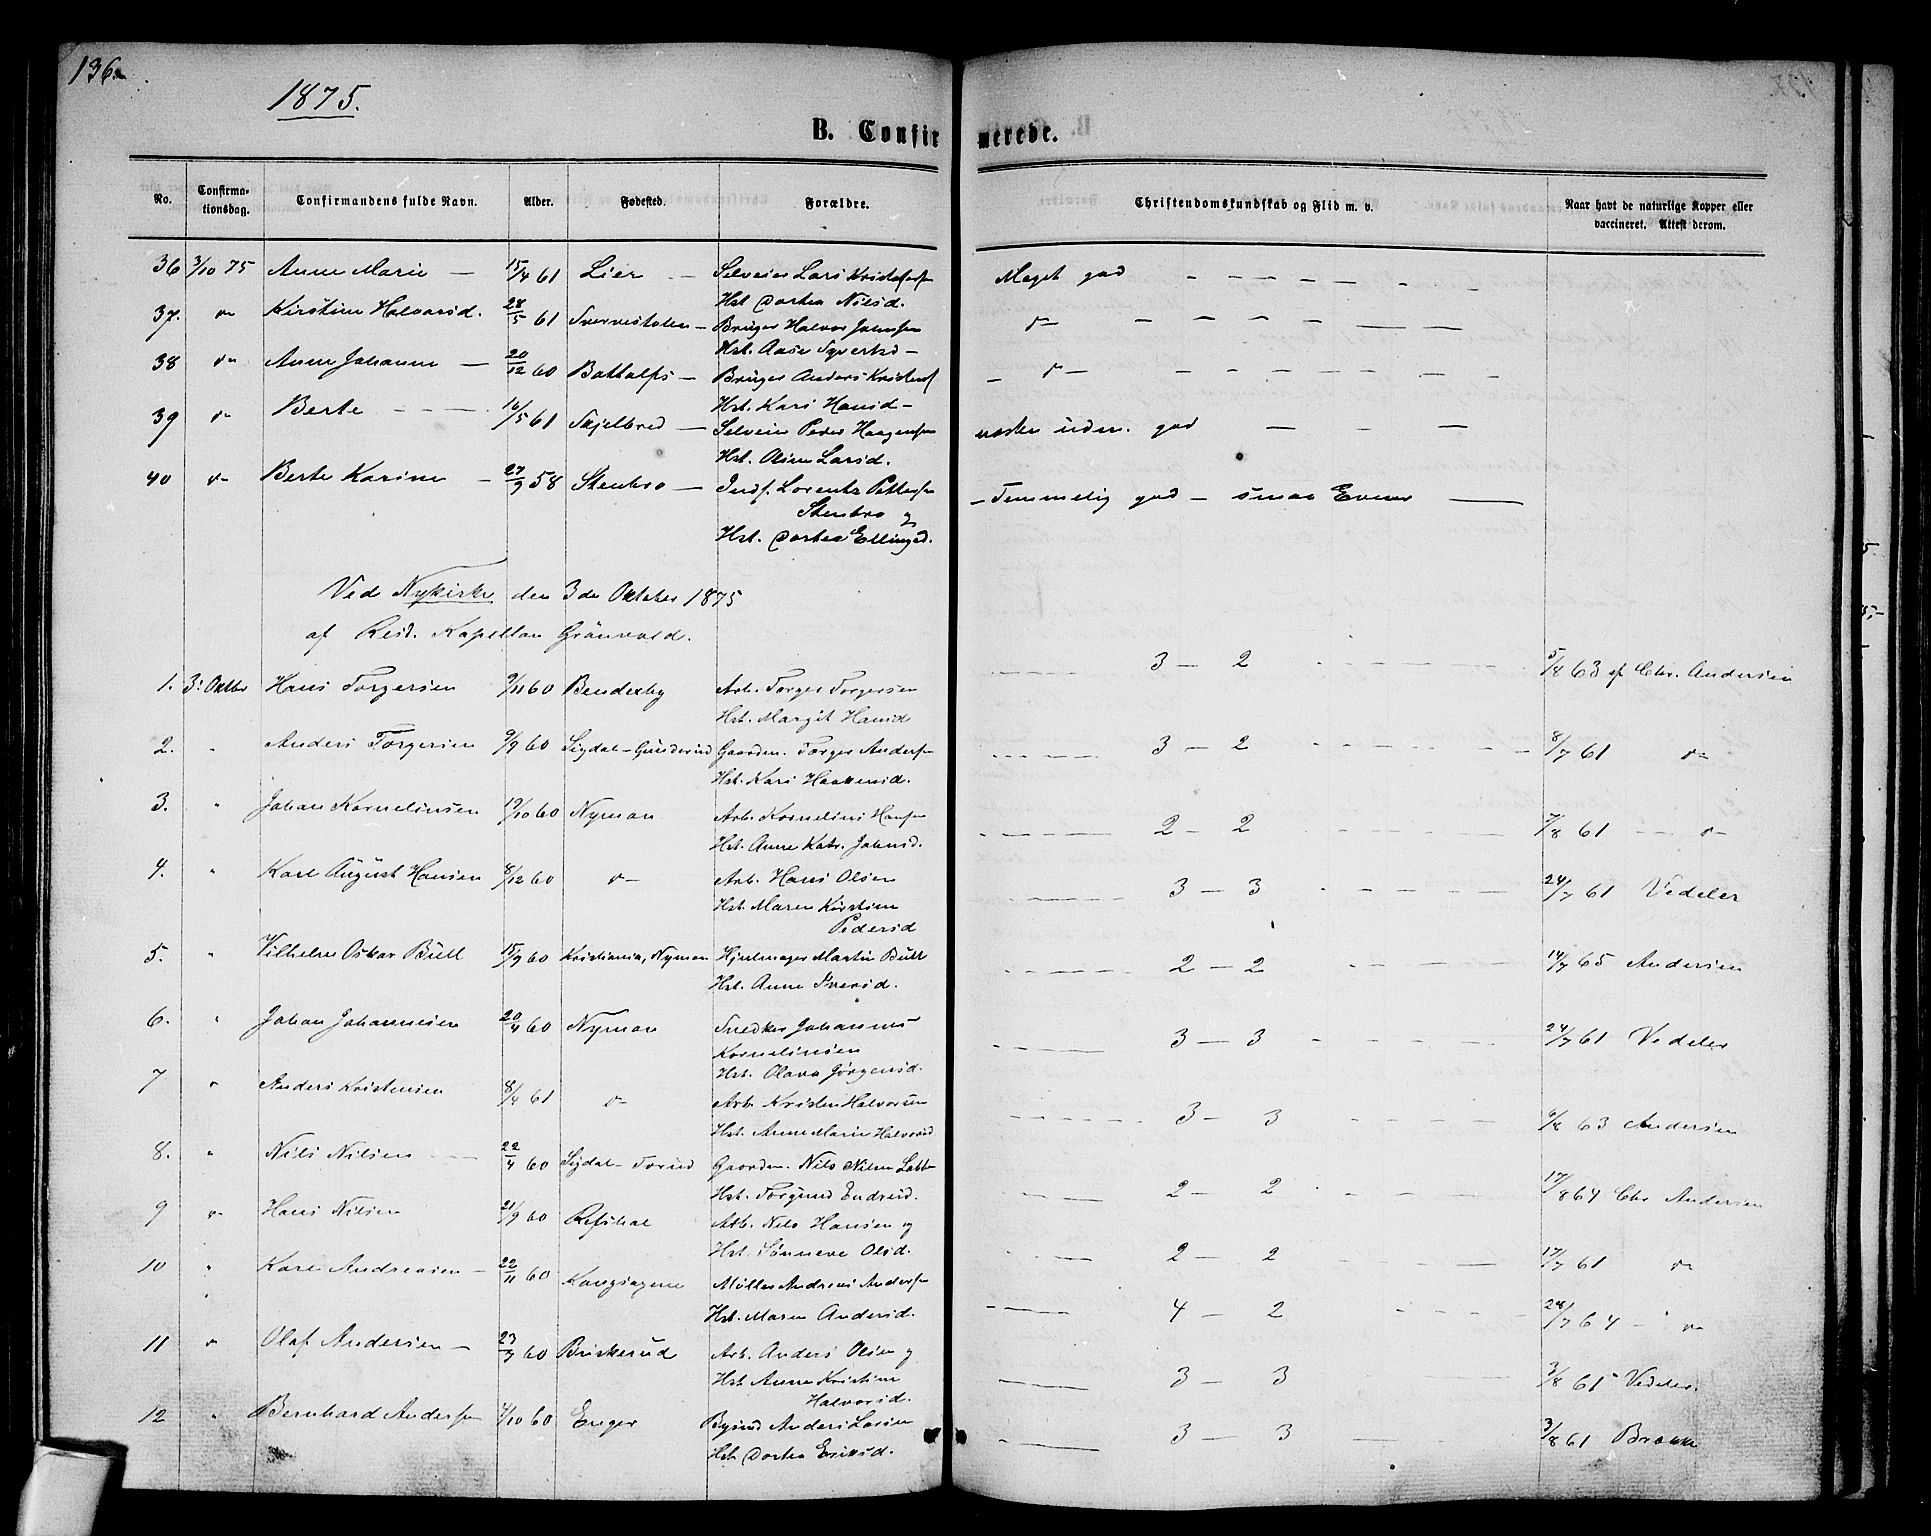 136.
1875.
B. Confirmerede.
No. Confirmationsdag. Confirmandens fulde Navn. Alder. Fødested. Forældre. Christendomskundskab og Flid m. v. Naar havt de naturlige Kopper eller vaccineret. Attest derom.
36 3/10 75 Anne Marie — 15/4 61 Lier — Selveier Lars Kristofersen Meget god
Hst. Dortea Nilsd.
37. do Kirstine Halvorsd. 28/5 61 — Bruger Halvor Johnsen do
Hst. Aase Syvertsd —
38 do Anne Johanne — 20/12 60 Bottolfs — Bruger Anders Kristens — do —
Hst. Kari Hansd —
39 do Berte — 16/5 61 Skjelbred — Selveier Peder Haagensen næsten uden. god
Hst. Oline Larsd.
40 do Berte Karine — 27/9 58 Stenbro — Inds. Lorentz Pettersen — Temmelig god — smaa Evner
Stenbro og
Hst. Dortea Ellingsd.
Ved Nykirke den 3de Oktober 1875
af Resd. Kapellan Grönvold.
1. 3: Oktbr Hans Torgersen 9/11 60 Benderby Arb. Torger Torgersen 3 — 2 5/8 63 af Chr. Andersen
Hst. Margit Hansd
2. " Anders Torgersen 9/9 60 Sigdal — Gunderud Gaardm. Torger Andersen 3 — 2 8/7 61 do
Hst. Kari Haakensd.
3. " Johan Korneliussen 19/10 60 Nymoen Arb. Kornelius Hansen 2 — 2 7/8 61 do
Hst. Anne Katr. Johnsd.
4. " Karl August Hansen 8/12 60 do Arb. Hans Olsen 3 — 3 24/7 61 Vedeler
Hst. Maren Kirstine
Pedersd
5. " Vilhelm Oskar Bull 15/9 60 Kristiania, Nymoen Hjulmager Martin Bull 2 — 2 14/7 65 Andersen
Hst. Anne Iversd.
6. " Johan Johannesen 20/4 60 Nymoen Snedker Johannes 3 — 3 24/7 61 Vedeler
Korneliussen
Hst. Olava Jörgensd.
7 " Anders Kristensen 8/4 61 do Arb. Kristen Halvorsen 3 — 3 9/8 63 Andersen
Hst. Anne Marie Halvorsd
8. " Nils Nilsen 22/4 60 Sigdal — Gaardm. Nils Nilsen 2 — 2 17/8 64 Chr Andersen
Hst. Torgund Endresd.
9 do Hans Nilsen 21/9 60 Refshal Arb. Nils Hansen og 2 — 2 17/7 61 do
Hst. Sönneve Olsd.
10 " Karl Andreasen — 22/11 60 Kongsagene Möller Andreas Andersen 4 — 2 28/7 64 — do
Hst. Maren Andersd.
11 do Olaf Andersen — 23/7 60 Buskerud Arb. Anders Olsen og 3 — 3 3/8 61 Vedeler
Hst Anne Kristine
Halvorsd.
12 " Bernhard Andersen 4/10 60 Enger Anders Larsen 3 — 3 3/8 61
Hst Dortea Eriksd.